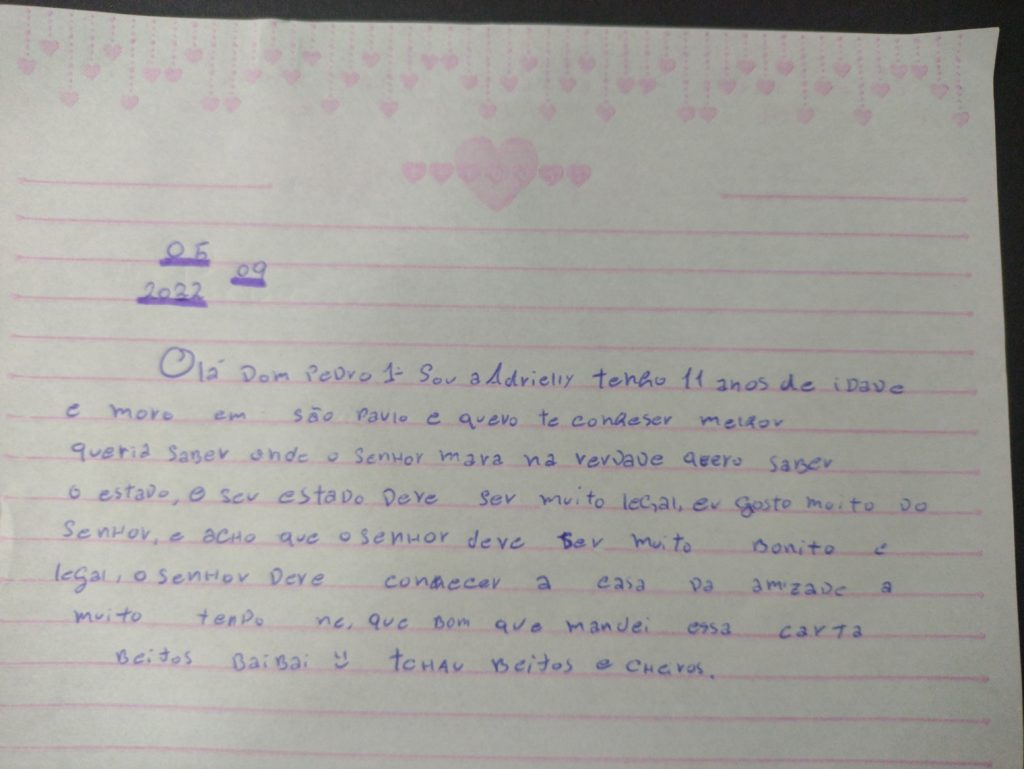 05
09
2022
Olá Dom Pedro 1- Sou a Adrielly tenho 11 anos de idade
e moro em são Paulo e quero te conheser melhor
queria saber onde o senhor mara na verdade quero saber
o estado, o seu estado deve ser muito legal, eu gosto muito do
senhor, e acho que o senhor deve ser muito bonito e
legal, o senhor deve conhecer a casa da amizade a
muito tenpo ne, que bom que mandei essa carta
Beitos BaiBai :) tchau Beitos e cheros.